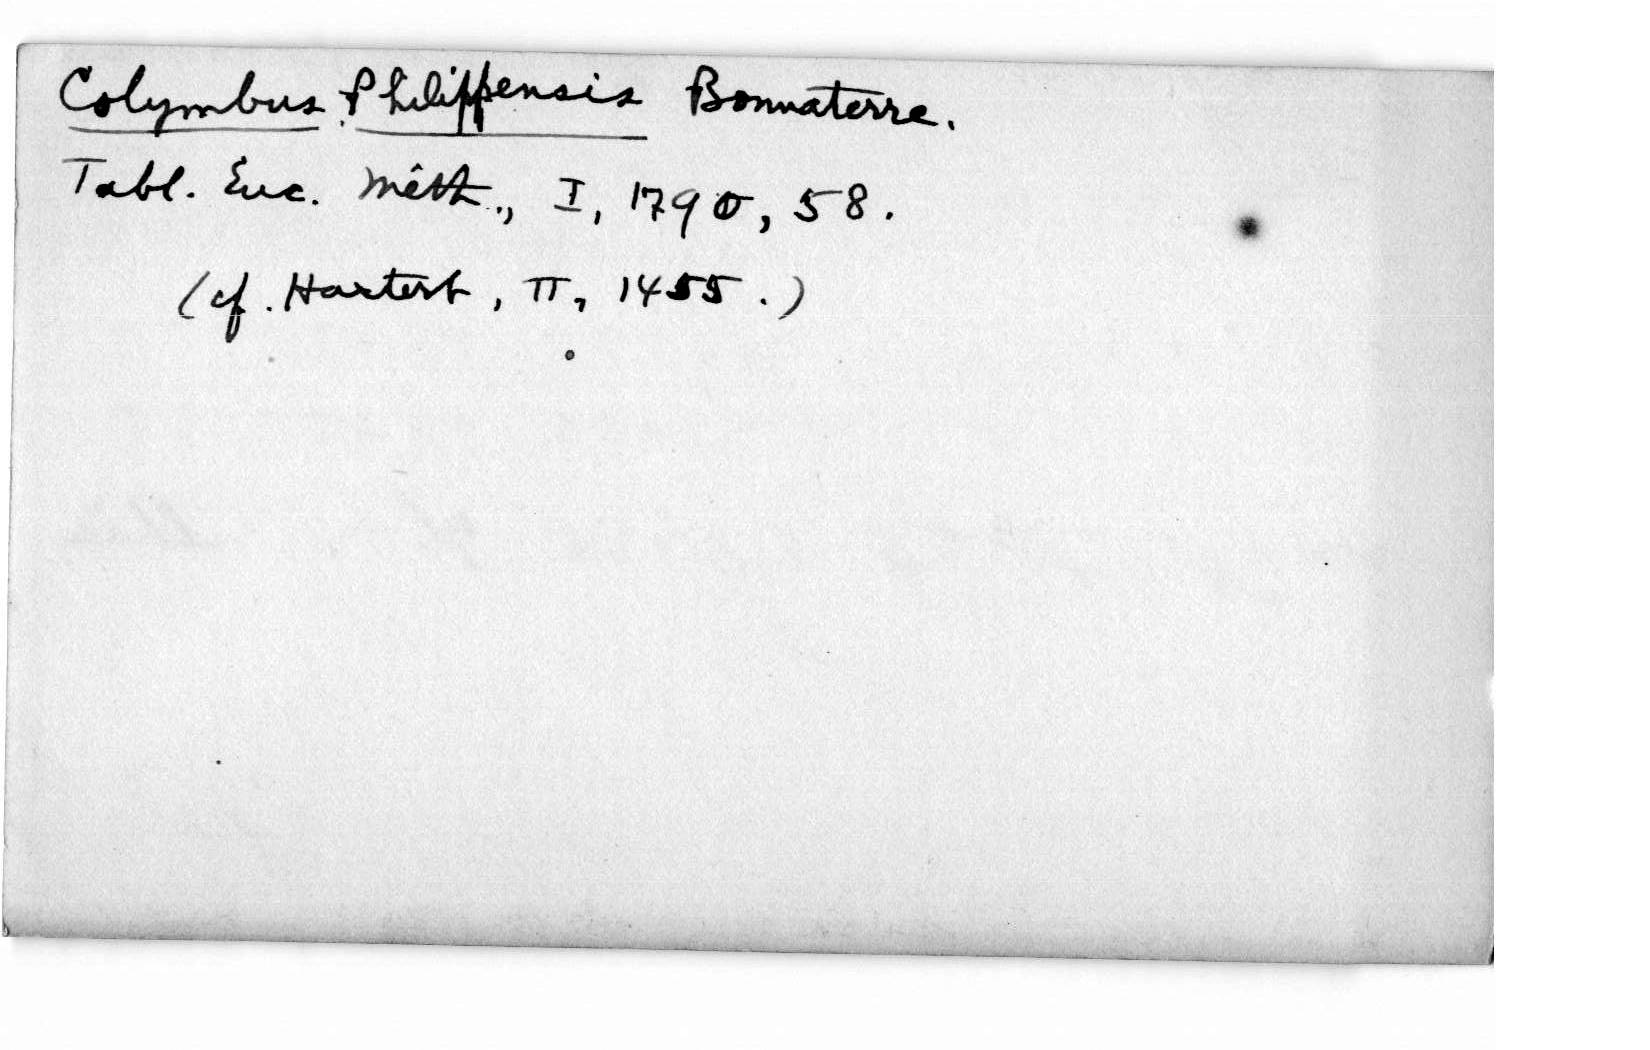 Colymbus Philippensis Bonnaterre.
Tabl. Enc. Méth., I, 1790, 58.
(cf. Hartert, II, 1455.)